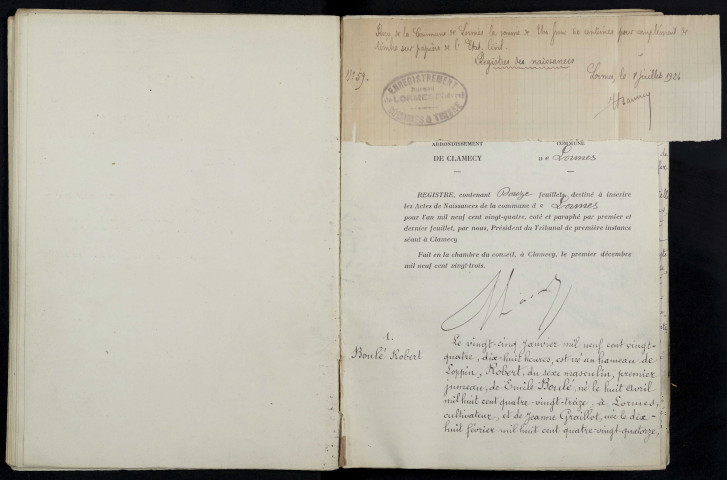 Reçu de la Commune de Lormes la somme de Un franc 60 centimes pour complément de
timbre sur papiers de l'Etat Civil.
Registres des naissances
N° 59.
Lormes, le 1 Juillet 1924
ENREGISTREMENT
Bureau
de LORMES (Nièvre)
DOMAINES & TIMBRE
ARRONDISSEMENT
DE CLAMECY
COMMUNE
de Lormes
REGISTRE, contenant Douze feuillets, destiné à inscrire
les Actes de Naissances de la commune de Lormes
pour l'an mil neuf cent vingt-quatre, coté et paraphé par premier et
dernier feuillet, par nous, Président du Tribunal de première instance
séant à Clamecy
Fait en la chambre du conseil, à Clamecy, le premier décembre
mil neuf cent vingt-trois.
1.
Boulé Robert
Le vingt-cinq Janvier mil neuf cent vingt-
quatre, dix-huit heures, est né au hameau de
Loppin, Robert, du sexe masculin, premier
jumeau, de Emile Boulé, né le huit Avril
mil huit cent quatre-vingt-treize, à Lormes,
cultivateur, et de Jeanne Graillot, née le dix-
huit février mil huit cent quatre-vingt-quatorze,